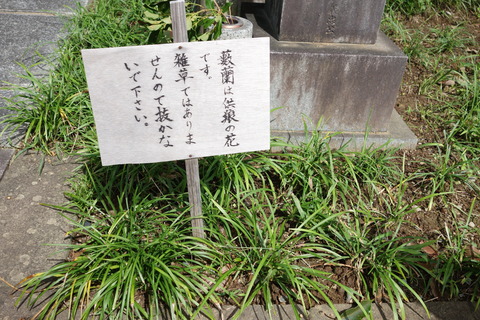 藪蘭は供の花
です。
雑草ではありま
せんので抜かな
いで下さい。